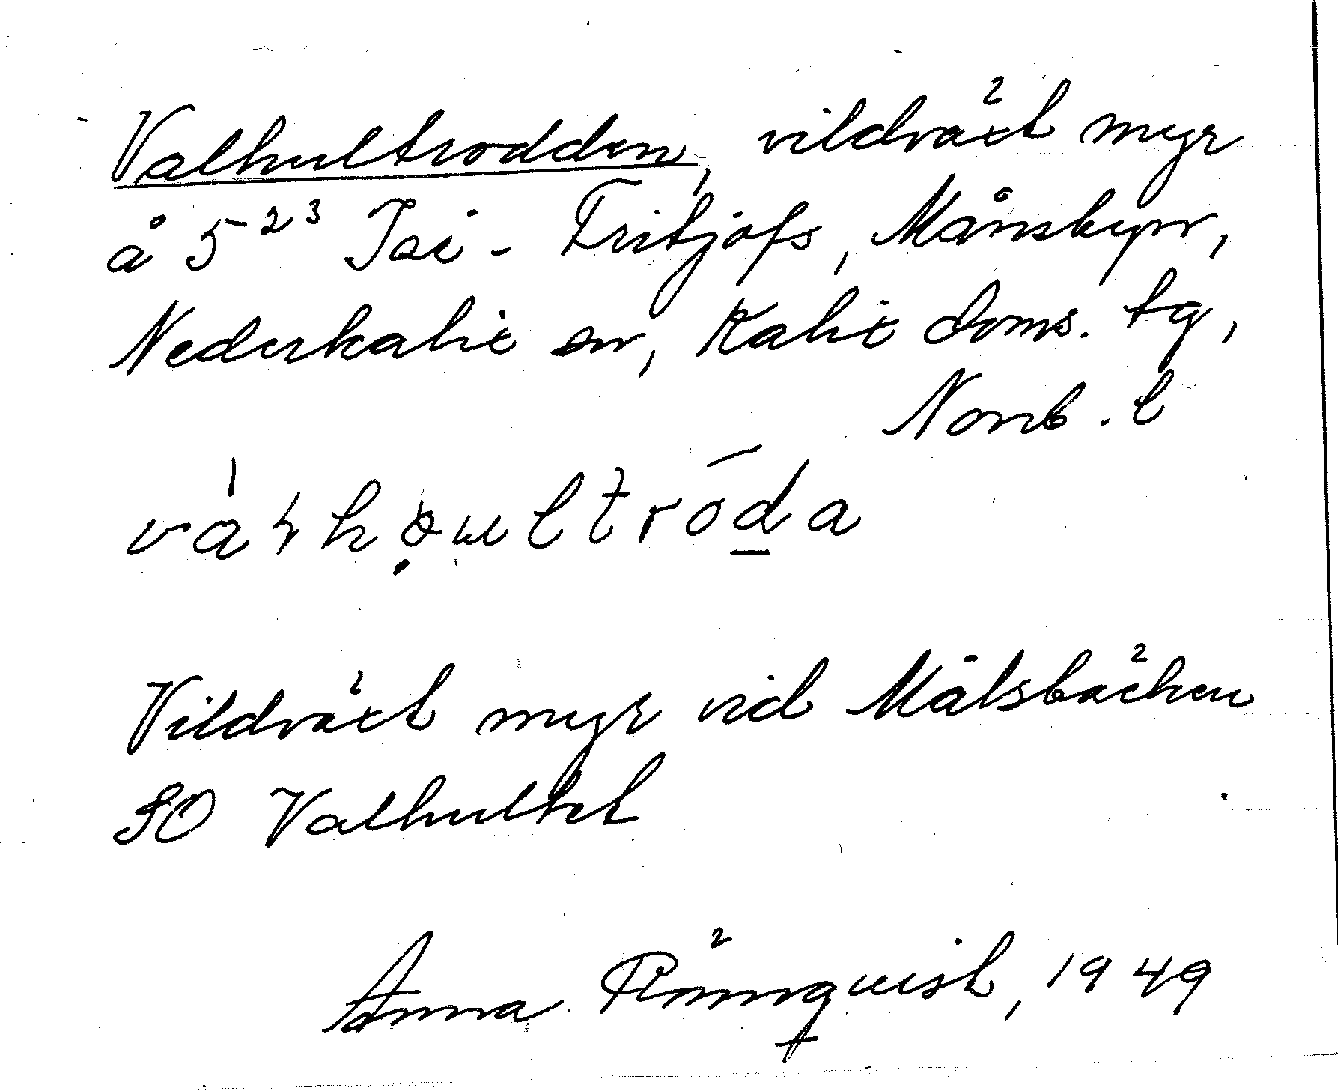 Valhultrodden, vildväxt myr
å 5²³ Jai - Fritjofs, Månsbyn,
Nederkalix sn, Kalix doms. tg,
Norrb. l
Vildväxt myr vid Målsbäcken
SO Valhultet
Anna Rönnqvist, 1949